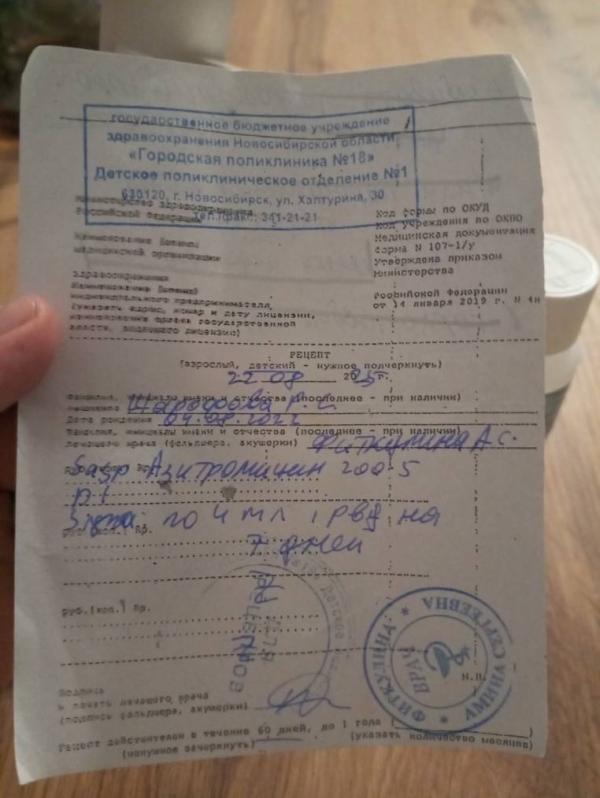 государственное бюджетное учреждение
здравоохранения Новосибирской области
«Городская поликлиника №18»
Детское поликлиническое отделение №1
630120, г. Новосибирск, ул. Халтурина, 30
тел./факс: 341-21-21
Министерство здравоохранения
Российской Федерации
Код формы по ОКУД
Код учреждения по ОКПО
Медицинская документация
Наименование (штамп)
медицинской организации
Форма N 107-1/у
Утверждена приказом
Министерства
здравоохранения
Наименование (штамп)
индивидуального предпринимателя,
(указать адрес, номер и дату лицензии,
наименование органа государственной
власти, выдавшего лицензию)
Российской Федерации
от 14 января 2019 г. N 4н
РЕЦЕПТ
(взрослый, детский - нужное подчеркнуть)
22 08 2025 г.
Фамилия, инициалы имени и отчества (последнее - при наличии)
пациента
Дата рождения 04.08.2022
Фамилия, инициалы имени и отчества (последнее - при наличии)
лечащего врача (фельдшера, акушерки) Фиткулина А.С.
Азитромицин 200-5
по 4 мл 1 р в д на
7 дней
руб.|коп.| Rp.
ДЛЯ
РЕЦЕПТОВ
ФИТКУЛИНА
АМИНА СЕРГЕЕВНА
ВРАЧ
Подпись
и печать лечащего врача
(подпись фельдшера, акушерки)
М.П.
Рецепт действителен в течение 60 дней, до 1 года (
(ненужное зачеркнуть)
(указать количество месяцев)